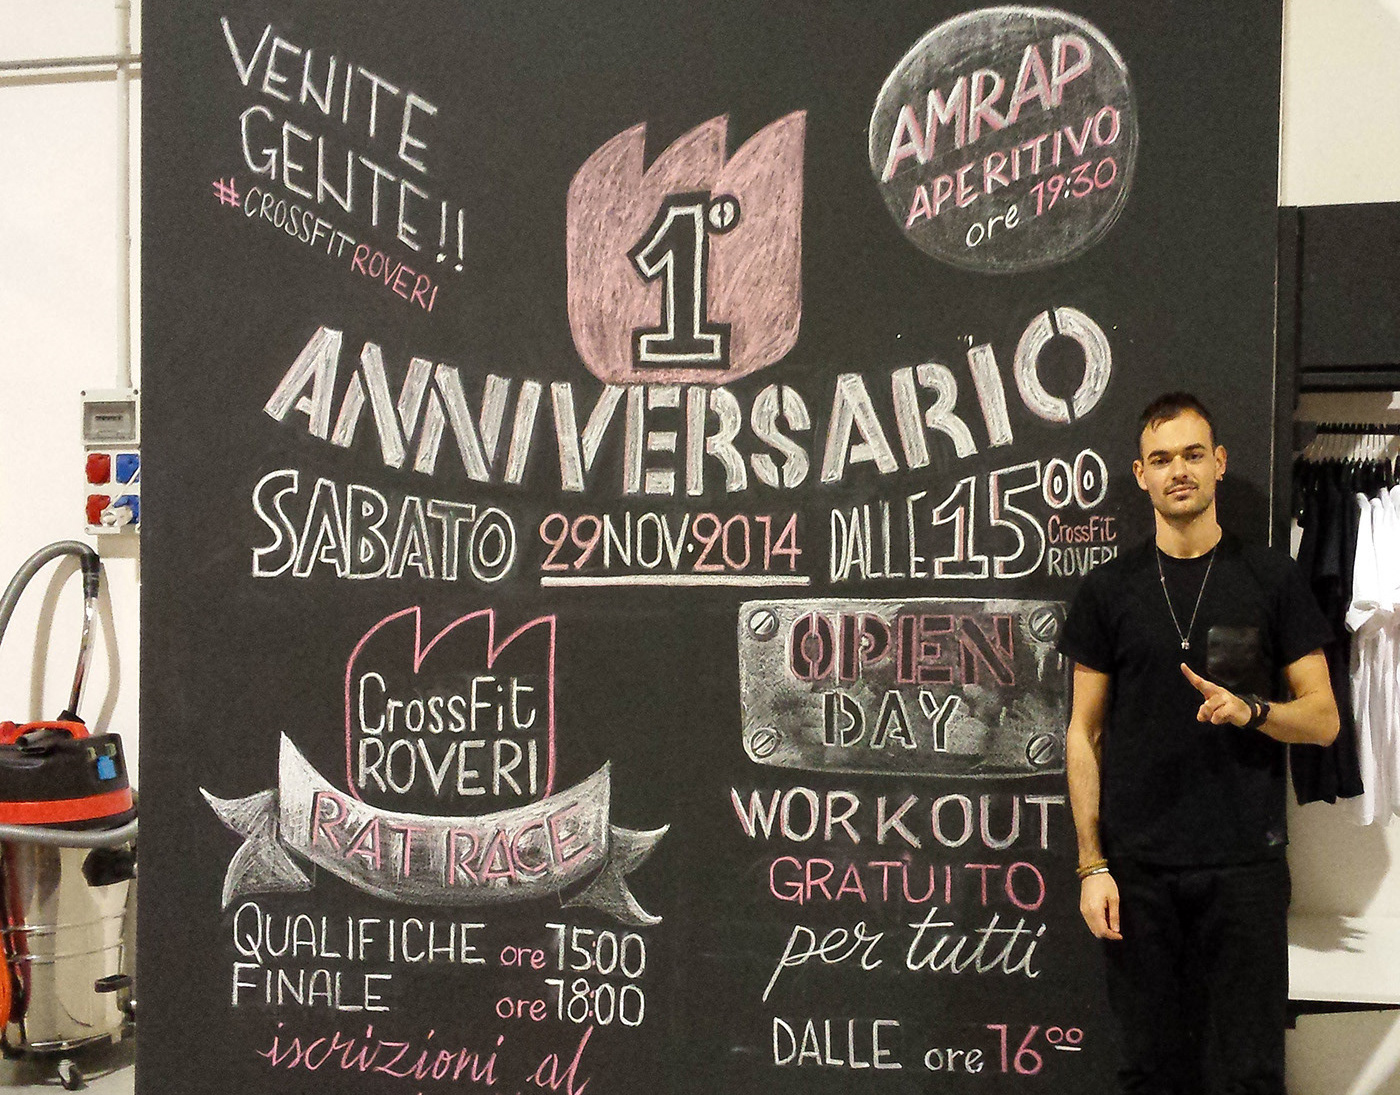 VENITE
GENTE!!
#CROSSFITROVERI
AMRAP
APERITIVO
ore 19:30
1°
ANNIVERSARIO
SABATO 29NOV·2014 DALLE 1500
CrossFit
ROVERI
CrossFit
ROVERI
RAT RACE
QUALIFICHE ore 15:00
FINALE ore 18:00
iscrizioni al
OPEN
DAY
WORKOUT
GRATUITO
per tutti
DALLE ore 16°°